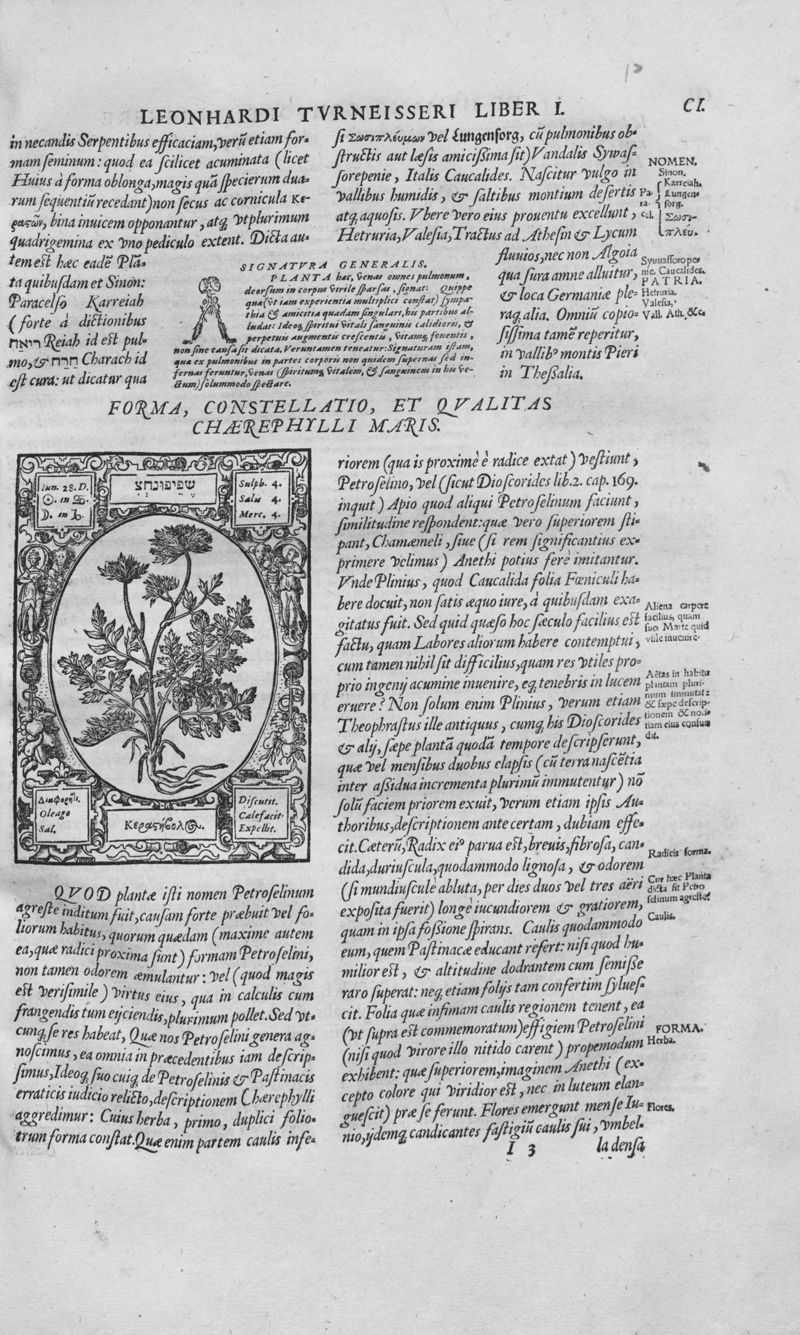 LEONHARDI TVRNEISSERI LIBER I.
CI.
in necandis Serpentibus efficaciam, verũ etiam for-
mam ſeminum: quod ea ſcilicet acuminata (licet
Huius à forma oblonga, magis quã ſpecierum dua-
rum ſequentiũ recedant) non ſecus ac cornicula κε-
ρατῶν, bina inuicem opponantur, atq; vt plurimum
quadrigemina ex vno pediculo extent. Dicta au-
tem eſt hæc eadẽ Plã-
ta quibuſdam et Sinon:
Paracelſo Karreiah
(forte à dictionibus
Reiah id eſt pul-
mo, & חרח Charach id
eſt cura: ut dicatur qua
SIGNATVRA GENERALIS.
PLANTA hæc, venas omnes pulmonum,
deorſum in corpus virile ſparſas, ſignat: Quippe
qua (vt iam experientia multiplici conſtat) ſympa-
thia & amicitia quadam ſingulari, his partibus al-
ludat: Ideoq; ſpiritui vitali ſanguinis calidioris, &
perpetuis augmentis creſcentis, vitamq; fouentis,
non ſine cauſa ſit dicata. Veruntamen teneatur: Signaturam iſtam,
qua ex pulmonibus in partes corporis non quidem ſupernas ſed in-
fernas feruntur, venas (ſpiritumq; vitalem, & ſanguinem in his ve-
ctum) ſolummodo ſpectare.
ſi Σωσιπλεύμων vel Lungenſorg, cũ pulmonibus ob-
ſtructis aut læſis amiciſſima ſit) Vandalis Sywaſ-
ſorepenie, Italis Caucalides. Naſcitur vulgo in
vallibus humidis, & ſaltibus montium deſertis
atq; aquoſis. Vbere vero eius prouentu excellunt,
Hetruria, Valeſia, Tractus ad Atheſin & Lycum
fluuios, nec non Algoia
qua ſura amne alluitur,
& loca Germaniæ ple-
raq; alia. Omniũ copio-
ſiſſima tamẽ reperitur,
in vallibꝰ montis Pieri
in Theſſalia.
NOMEN.
Sinon.
Karreiah.
Lungen-
ſorg.
Σωσι-
πλεύ.
Pa-
ra-
cel.
Sywaſſorope-
nie. Caucalides.
PATRIA.
Hetruria.
Valeſia,
Vall. Ath. &c.
FORMA, CONSTELLATIO, ET QVALITAS
CHÆREPHYLLI MARIS.
Iun. 28. D.
☉. in ♋.
D. in ♄.
שפיפונחצ
Sulph. 4.
Salis 4.
Merc. 4.
Διαφορητι.
Oleago
Sal.
Diſcutit.
Calefacit.
Expellit.
QVOD plantæ iſti nomen Petroſelinum
agreſte inditum fuit, cauſam forte præbuit vel fo-
liorum habitus, quorum quædam (maxime autem
ea, quæ radici proxima ſunt) formam Petroſelini,
non tamen odorem æmulantur: vel (quod magis
eſt veriſimile) virtus eius, qua in calculis cum
frangendis tum eijciendis, plurimum pollet. Sed vt-
cunq; ſe res habeat, Quæ nos Petroſelini genera ag-
noſcimus, ea omnia in præcedentibus iam deſcrip-
ſimus, Ideoq; ſuo cuiq; de Petroſelinis & Paſtinacis
erraticis iudicio relicto, deſcriptionem Chærephylli
aggredimur: Cuius herba, primo, duplici folio-
trum forma conſtat. Quæ enim partem caulis infe-
riorem (qua is proximè è radice extat) veſtiunt,
Petroſelino, vel (ſicut Dioſcorides lib.2. cap. 169.
inquit) Apio quod aliqui Petroſelinum faciunt,
ſimilitudine reſpondent: quæ vero ſuperiorem ſti-
pant, Chamæmeli, ſiue (ſi rem ſignificantius ex-
primere velimus) Anethi potius ferè imitantur.
Vnde Plinius, quod Caucalida folia Fœniculi ha-
bere docuit, non ſatis æquo iure, à quibuſdam exa-
gitatus fuit. Sed quid quæſo hoc ſæculo facilius eſt
factu, quam Labores aliorum habere contemptui,
cum tamen nihil ſit difficilius, quam res vtiles pro-
prio ingenij acumine inuenire, eq; tenebris in lucem
eruere? Non ſolum enim Plinius, verum etiam
Theophraſtus ille antiquus, cumq; his Dioſcorides
& alij, ſæpe plantã quodã tempore deſcripſerunt,
quæ vel menſibus duobus elapſis (cũ terra naſcẽtia
inter aſſidua incrementa plurimũ immutentur) nõ
ſolũ faciem priorem exuit, verum etiam ipſis Au-
thoribus, deſcriptionem ante certam, dubiam effe-
cit. Cæterũ, Radix eiꝰ parua eſt, breuis, fibroſa, can-
dida, duriuſcula, quodammodo lignoſa, & odorem
(ſi mundiuſculè abluta, per dies duos vel tres aëri
expoſita fuerit) longè iucundiorem & gratiorem,
quam in ipſa foſſione ſpirans. Caulis quodammodo
eum, quem Paſtinacæ educant refert: niſi quod hu-
milior eſt, & altitudine dodrantem cum ſemiſſe
raro ſuperat: neq; etiam folijs tam confertim ſylueſ-
cit. Folia quæ infimam caulis regionem tenent, ea
(vt ſupra eſt commemoratum) effigiem Petroſelini
(niſi quod virore illo nitido carent) propemodum
exhibent: quæ ſuperiorem, imaginem Anethi (ex-
cepto colore qui viridior eſt, nec in luteum elan-
gueſcit) præ ſe ferunt. Flores emergunt menſe Iu-
nio, ijdemq; candicantes faſtigiũ caulis ſui, vmbel-
Aliena carpere
facilius, quam
ſuo Marte quid
vtile inuenire.
Aetas in habitu
plantam pluri-
mum immutat:
& ſæpe deſcrip-
tionem & noti-
tiam eius confun
dit.
Radicis forma.
Cur hæc Planta
dicta ſit Petro
ſelinum agreſte.
Caulis.
FORMA.
Herba.
Flores.
I 3
la denſa